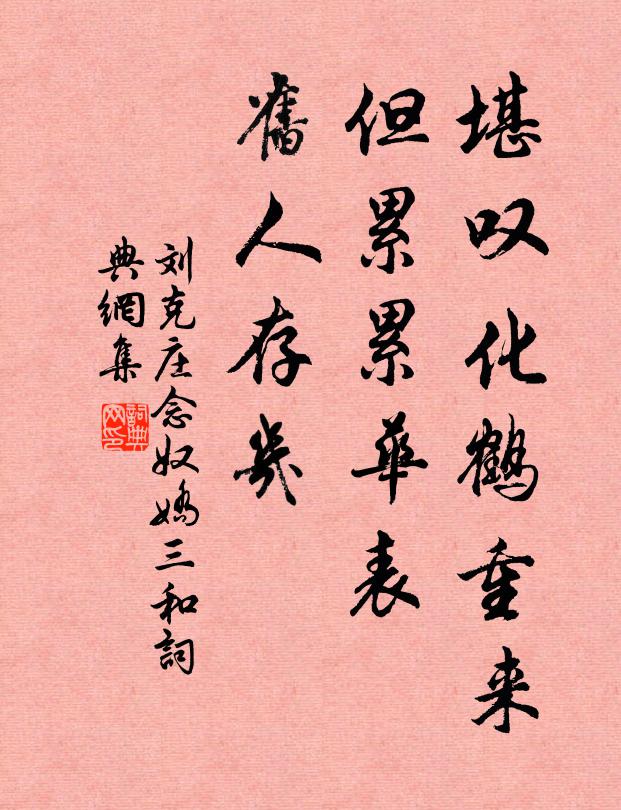 堪叹化鹤重来
但累累华表
旧人存几
刘克庄念奴娇三和詞
典網集
詞典网印